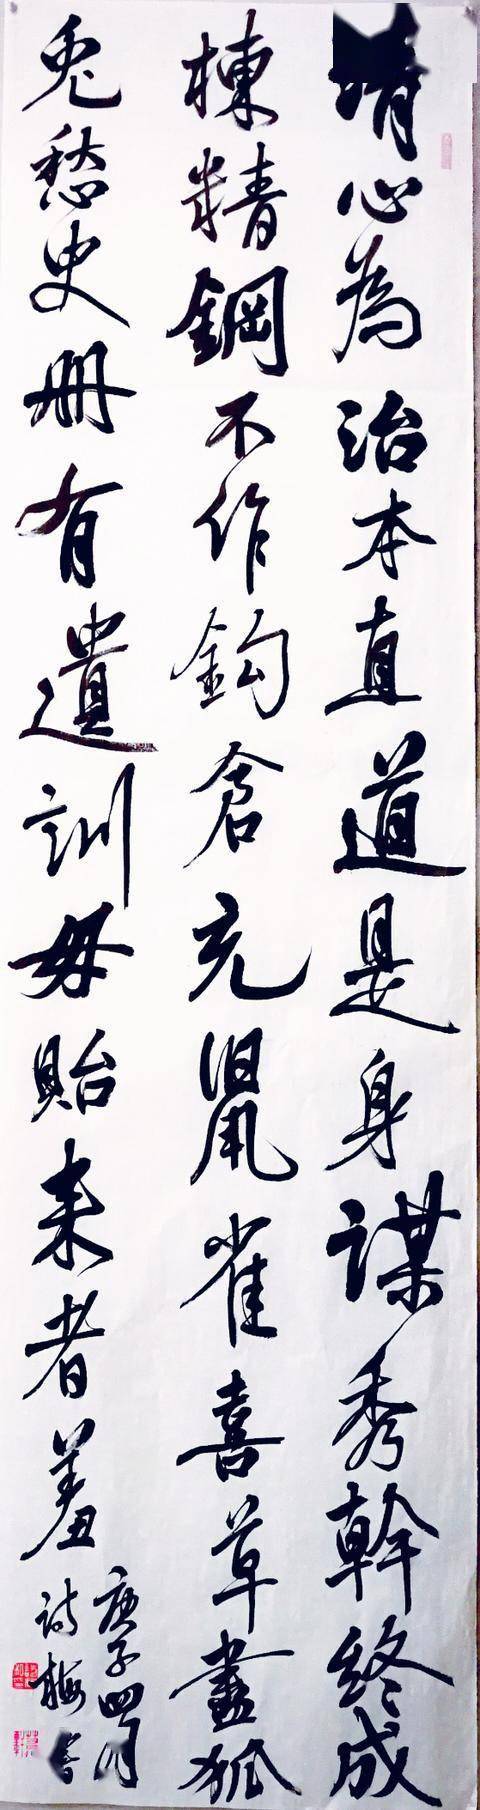 清心為治本直道是身謀秀幹終成
棟精鋼不作鈎倉充鼠雀喜草盡狐
兎愁史册有遺訓毋貽来者羞
庚子四月
詩梅書